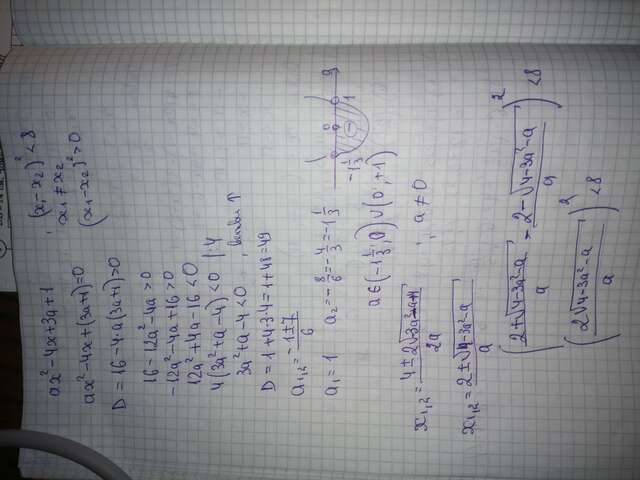 ax² - 4x + 3a + 1 , (x₁ - x₂)² < 8
ax² - 4x + (3a+1) = 0 x₁ ≠ x₂
D = 16 - 4·a(3a+1) > 0 (x₁ - x₂)² > 0
16 - 12a² - 4a > 0
-12a² - 4a + 16 > 0
12a² + 4a - 16 < 0
4(3a² + a - 4) < 0 | :4
3a² + a - 4 < 0 ,
D = 1 + 4·3·4 = 1 + 48 = 49
a₁,₂ = (-1 ± 7)/6
a₁ = 1 a₂ = -8/6 = -4/3 = -1 1/3
-1 1/3 0 1 a
a ∈ (-1 1/3; 0) ∪ (0; +1)
x₁,₂ = ; a ≠ 0
x₁,₂ = (2 ± √(4 - 3a² - a))/a
((2 + √(4 - 3a² - a))/a - (2 - √(4 - 3a² - a))/a)² < 8
(2√(4 - 3a² - a)/a)² < 8